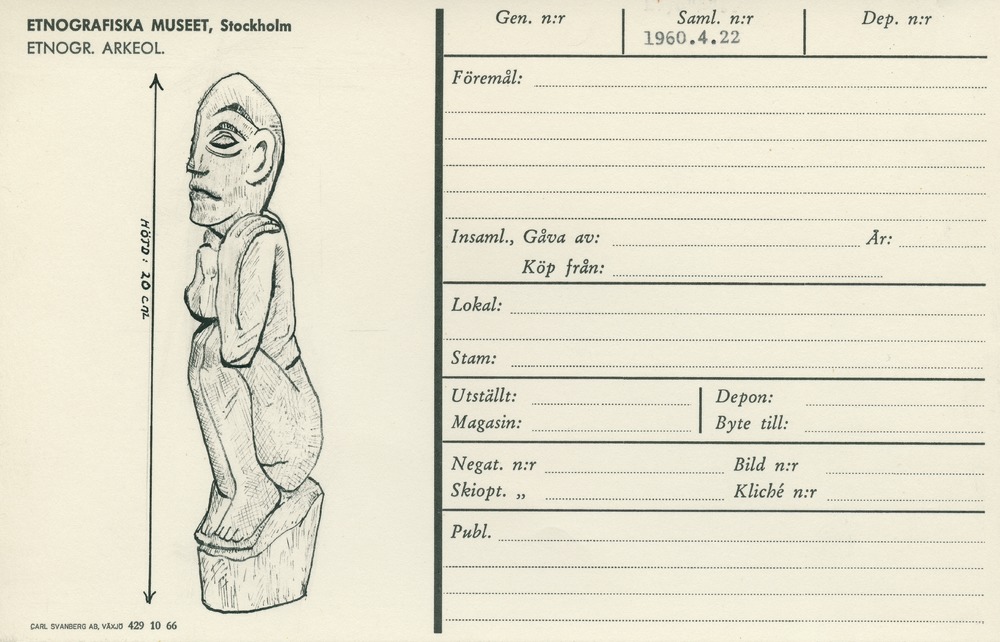 ETNOGRAFISKA MUSEET, Stockholm
ETNOGR. ARKEOL.
HÖJD: 20 CM
CARL SVANBERG AB, VÄXJÖ 429 10 66
Gen. n:r Saml. n:r Dep. n:r
1960.4.22
Föremål:
Insaml., Gåva av: År:
Köp från:
Lokal:
Stam:
Utställt: Depon:
Magasin: Byte till:
Negat. n:r Bild n:r
Skiopt. „ Kliché n:r
Publ.